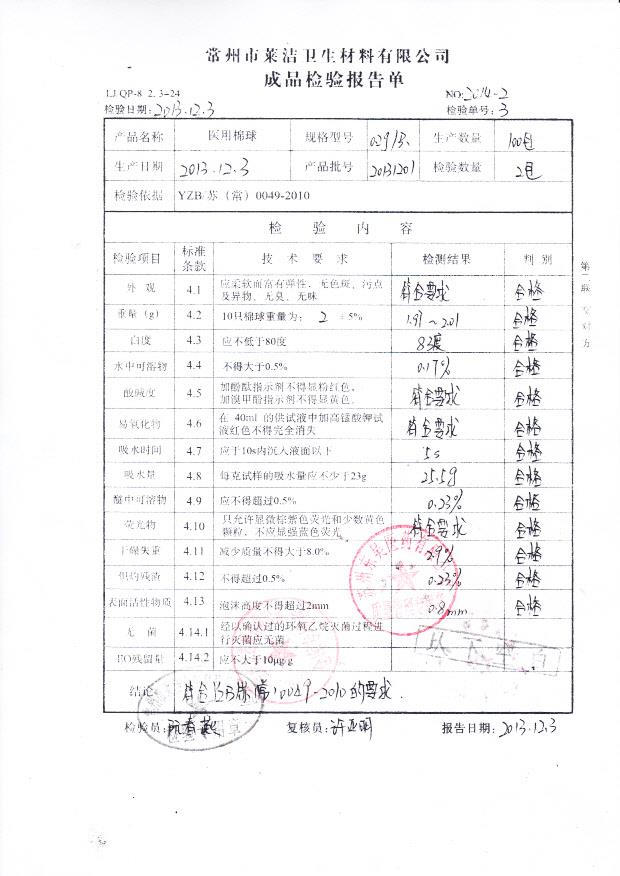 常州市莱洁卫生材料有限公司
成品检验报告单
LJ QP-8 2.3-24 NO:2014-2
检验日期:2013.12.3 检验单号:3
产品名称 医用棉球 规格型号 生产数量 100包
生产日期 2013.12.3 产品批号 20131201 检验数量 2包
检验依据 YZB/苏(常)0049-2010
检 验 内 容
检验项目 标准条款 技 术 要 求 检测结果 判 别
外 观 4.1 应柔软而富有弹性、无色斑、污点及异物、无臭、无味 符合要求 合格
重量(g) 4.2 10只棉球重量为: 2 ±5% 1.91~2.01 合格
白度 4.3 应不低于80度 83度 合格
水中可溶物 4.4 不得大于0.5% 0.17% 合格
酸碱度 4.5 加酚酞指示剂不得显粉红色,加溴甲酚指示剂不得显黄色. 符合要求 合格
易氧化物 4.6 在 40ml 的供试液中加高锰酸钾试液红色不得完全消失 符合要求 合格
吸水时间 4.7 应于10s内沉入液面以下 5s 合格
吸水量 4.8 每克试样的吸水量应不少于23g 25.5g 合格
醚中可溶物 4.9 应不得超过0.5% 0.33% 合格
荧光物 4.10 只允许显微棕紫色荧光和少数黄色颗粒,不应显强蓝色荧光 符合要求 合格
干燥失重 4.11 减少质量不得大于8.0% 合格
炽灼残渣 4.12 不得超过0.5% 0.23% 合格
表面活性物质 4.13 泡沫高度不得超过2mm 0.8mm 合格
无 菌 4.14.1 经以确认过的环氧乙烷灭菌过程进行灭菌应无菌
EO残留量 4.14.2 应不大于10μg/g
以下空白
结论: 符合YZB/苏(常)0049-2010的要求.
检验员: 复核员:许亚明 报告日期:2013.12.3